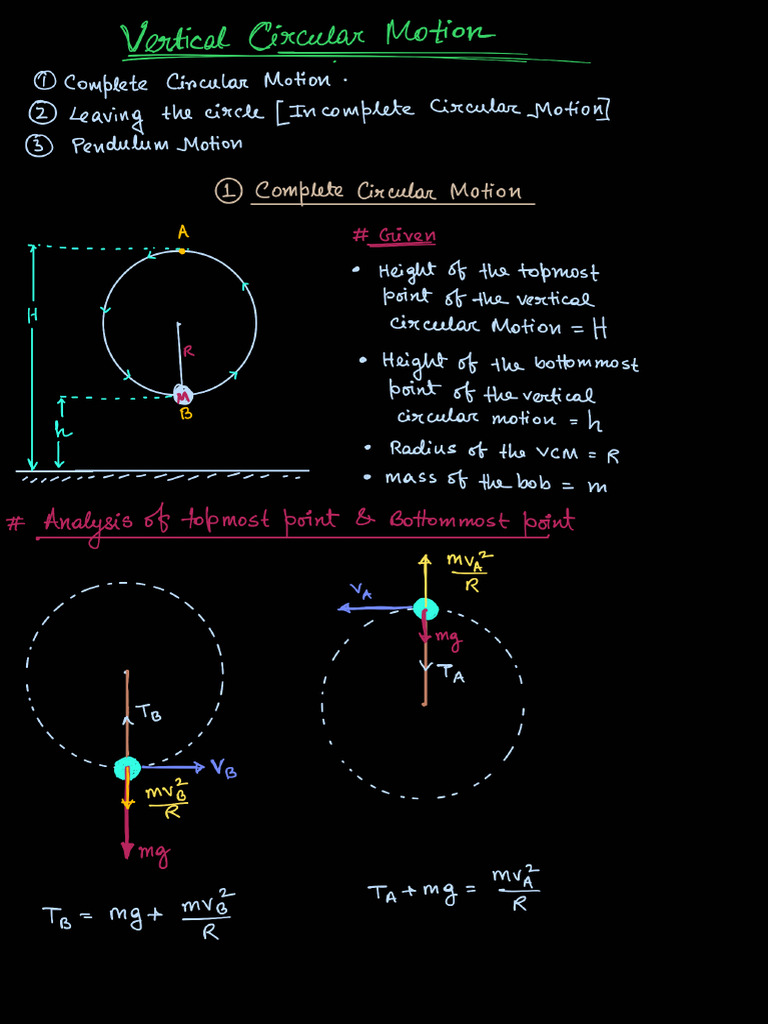 Vertical Circular Motion
① Complete Circular Motion.
② Leaving the circle [Incomplete Circular Motion]
③ Pendulum Motion
① Complete Circular Motion
A
H
R
M
B
h
# Given
• Height of the topmost
point of the vertical
circular Motion = H
• Height of the bottommost
point of the vertical
circular motion = h
• Radius of the VCM = R
• mass of the bob = m
# Analysis of topmost point & Bottommost point
T_B
V_B
mv_B²/R
mg
T_B = mg + mv_B²/R
mv_A²/R
v_A
mg
T_A
T_A + mg = mv_A²/R